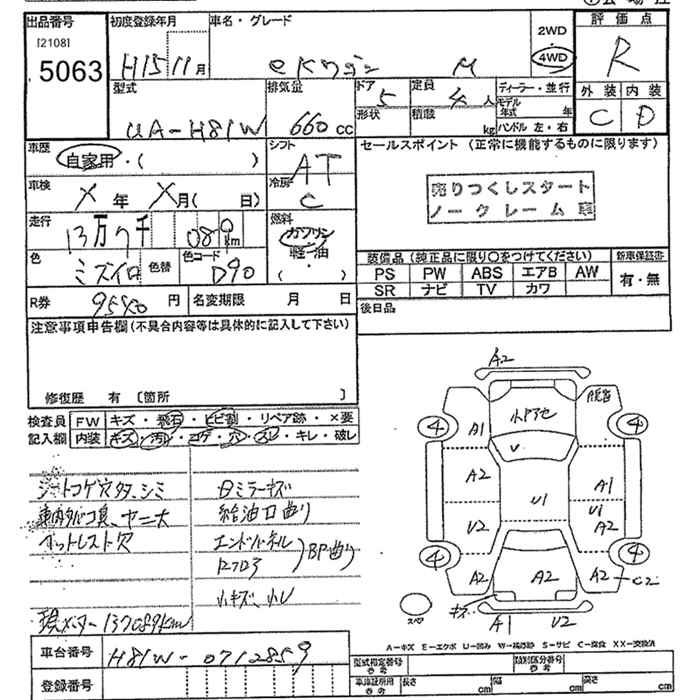 出品番号 初度登録年月 車名・グレード 評価点
[2108] 2WD
5063 H15 11月 eKワゴン M 4WD R
型式 排気量 ドア 5 定員 4人 ディーラー・並行 外装 内装
形状 積載 kg モデル年式 年 C D
UA-H81W 660cc ハンドル 左・右
車歴 自家用・( ) シフト AT セールスポイント (正常に機能するものに限ります)
車検 X年 X月( 日) 冷房 C 売りつくしスタート
ノークレーム車
走行 13万7千 080km 燃料 ガソリン・軽油・( )
色 ミズイロ 色替 色コード D90
装備品 (純正品に限り○をつけてください) 新車保証書
PS PW ABS エアB AW 有・無
SR ナビ TV カワ
R券 9540円 名変期限 月 日 後日品
注意事項申告欄(不具合内容等は具体的に記入して下さい)
修復歴 有 [箇所 ]
検査員 FW キズ・飛石・ヒビ割・リペア跡・×要
記入欄 内装 キズ・汚れ・コゲ・穴・スレ・キレ・破レ
シートコゲ穴タタ、シミ 日ミラーキズ
車内タバコ臭、ヤニ大 給油口曲り
エンドパネル
BP曲り
小キズ、小レ
現メーター137089km
車台番号 H81W-0712859
登録番号
A2
A1
小ドアセ
V
A2
U1
A1
U1
A2
V2
A2
A2
A2
C2
キズ
A1
U2
4
4
4
4
スペア
A-キズ E-エクボ U-凹み S-サビ C-腐食 XX-交換済
型式指定番号 参考 類別区分番号 参考
車庫証明用 参考 長さ cm 幅 cm 高さ cm